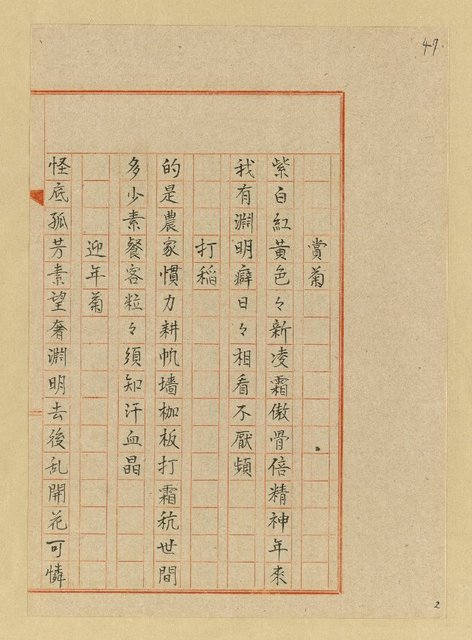 47.
賞菊
紫白紅黃色々新凌霜傲骨倍精神年來
我有淵明癖日々相看不厭頻
打稲
的是農家慣力耕帆墻枷板打霜秔世間
多少素餐客粒々須知汗血晶
迎年菊
怪底孤芳素望奢淵明去後乱開花可憐
2